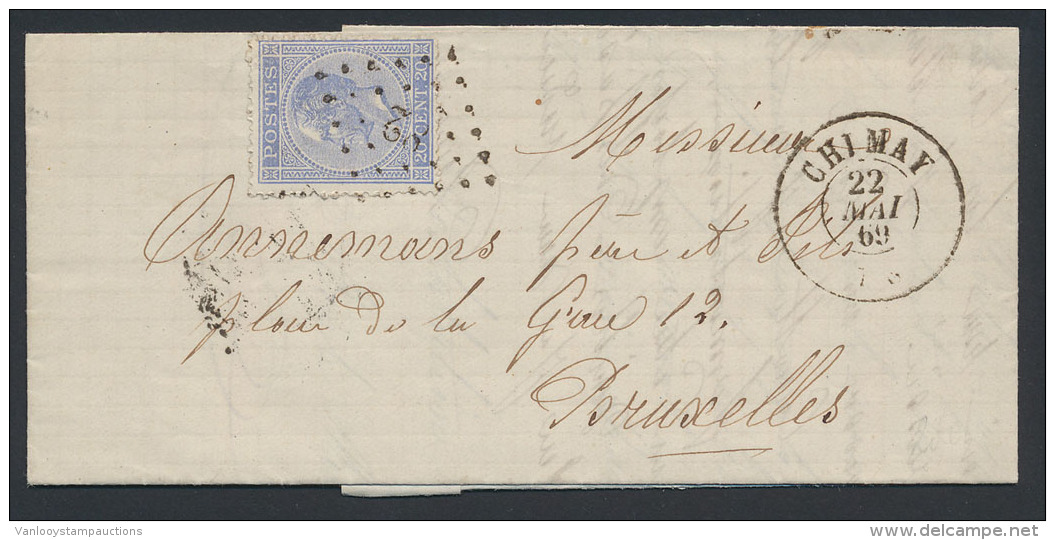 POSTES
20 CENT 20
CHIMAY
22
MAI
69
Messieurs
Annemans père et Fils
place de la Gare 12.
Bruxelles
Vanlooystampauctions
www.delcampe.net